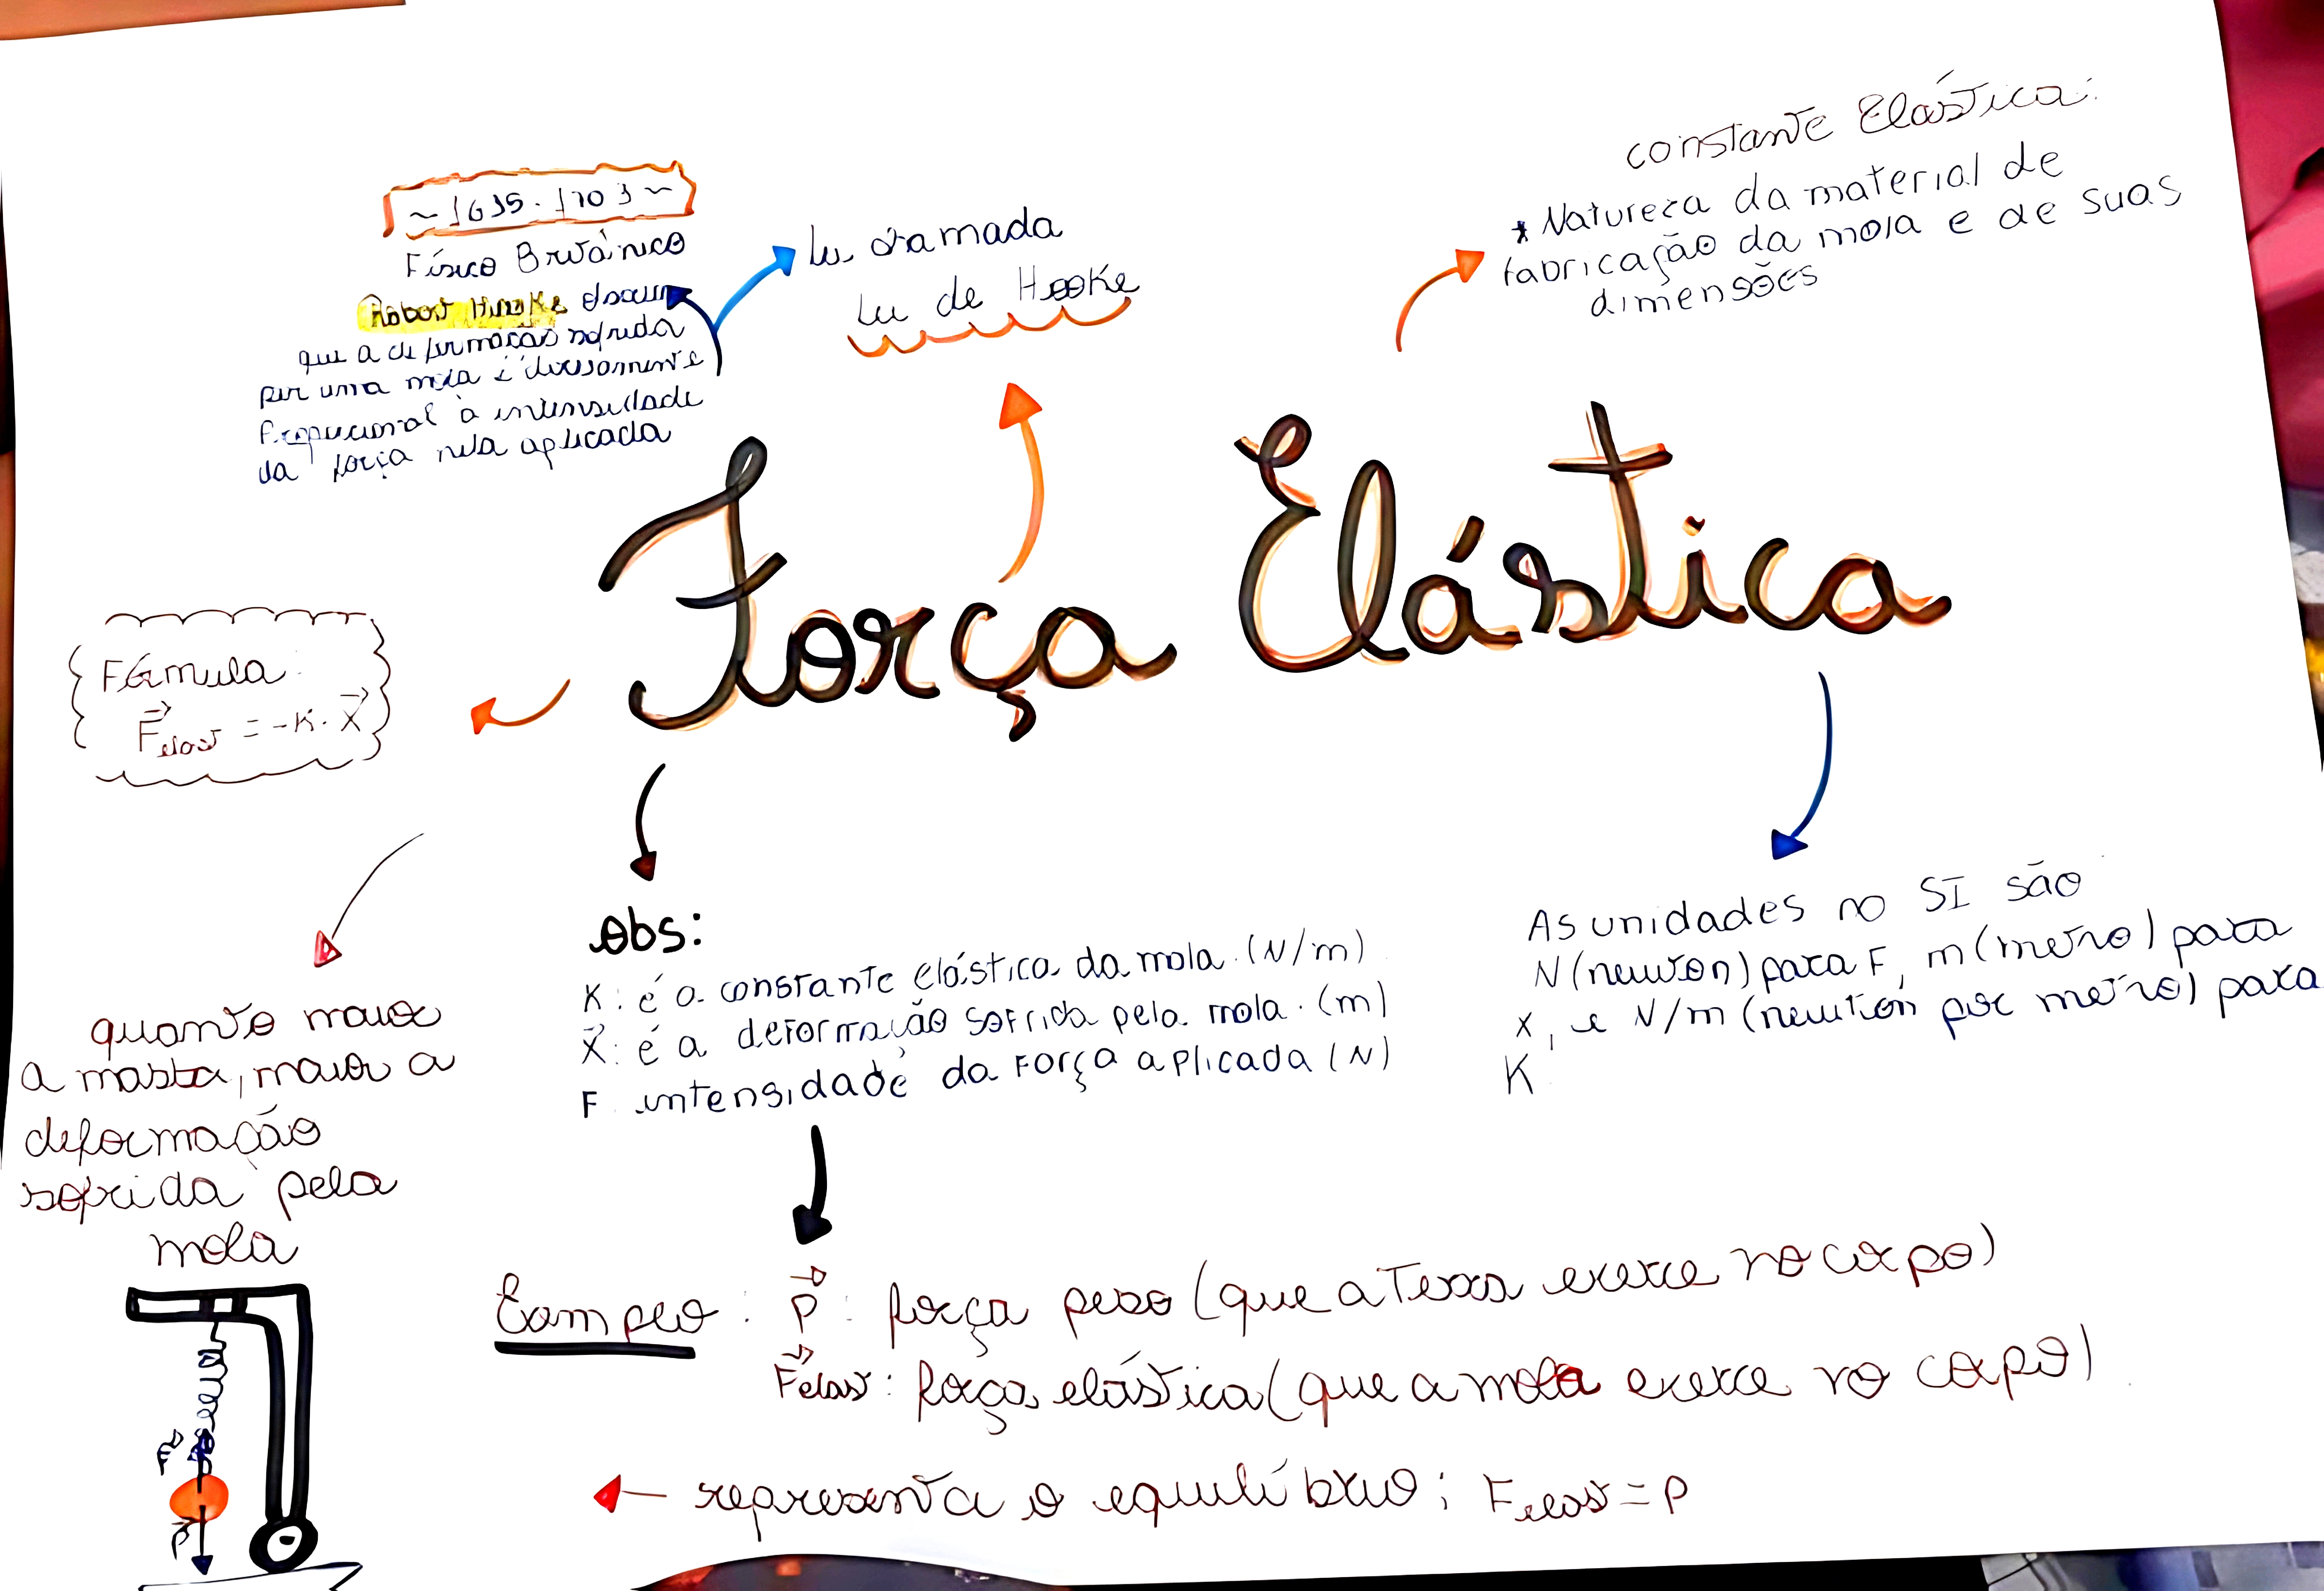 ~1635-1703~
Físico Britânico
Robert Hooke
que a deformação sofrida
por uma mola é diretamente
Proporcional à intensidade
da força nela aplicada
Lei chamada
Lei de Hooke
constante Elástica:
* Natureza da material de
fabricação da mola e de suas
dimensões
Força Elástica
Fórmula
F⃗elast = -K. X⃗
obs:
K: é a constante elástica da mola. (N/m)
X⃗: é a deformação sofrida pela mola. (m)
F intensidade da Força aplicada (N)
As unidades no SI são
N (newton) para F, m (metro) para
x, e N/m (newton por metro) para
K
quanto maior
a massa, maior a
deformação
sofrida pela
mola
F⃗
P⃗
Exemplo: P⃗: força peso (que a Terra exerce no corpo)
F⃗elast: força elástica (que a mola exerce no corpo)
representa o equilíbrio; Felast = P